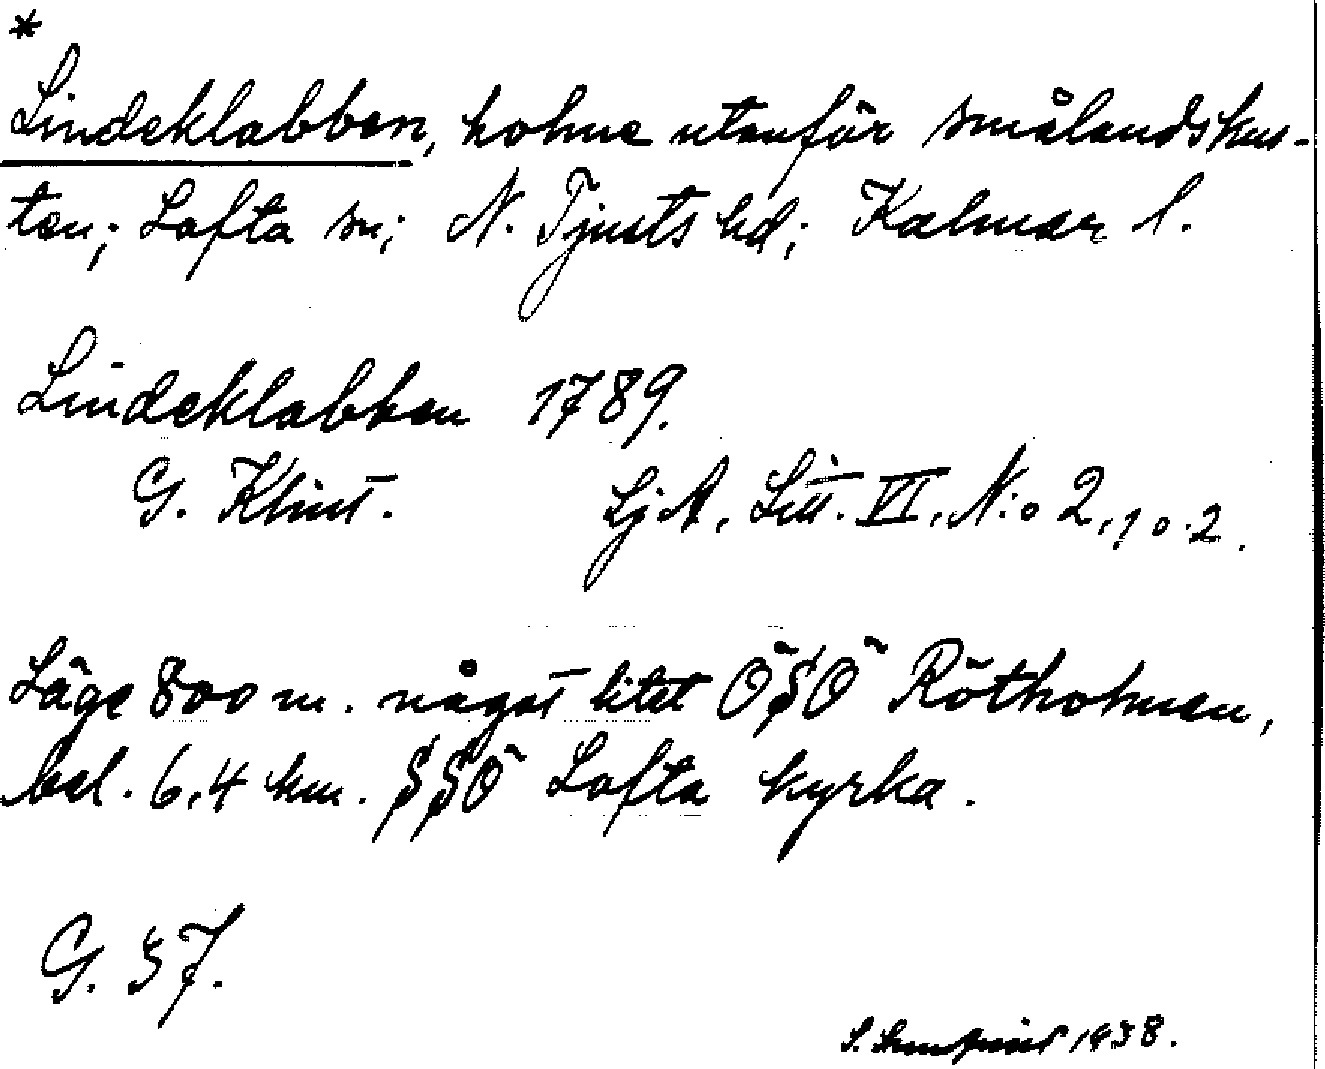 *
Lindeklabben, holme utanför smålandskus-
ten; Lofta sn; N. Tjusts hd; Kalmar l.
Lindeklabben 1789.
G. Klint. SjA, Litt. VI, N:o 2, 1 o. 2.
Läge 800 m. något litet ÖSÖ Rötholmen,
bel. 6,4 km. SSÖ Lofta kyrka.
G. 37.
S. 1938.